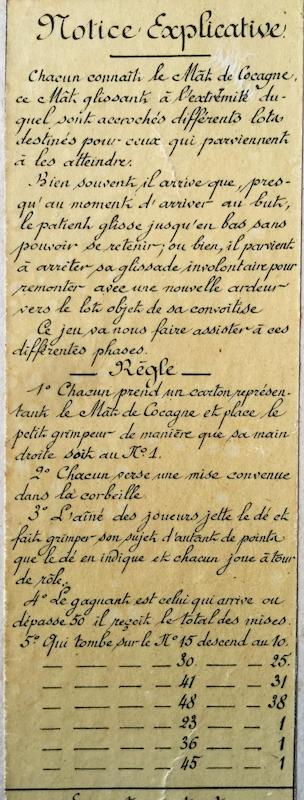 Notice Explicative
Chacun connaît le Mât de Cocagne,
ce Mât glissant à l'extrémité du-
quel sont accrochés différents lots
destinés pour ceux qui parviennent
à les atteindre.
Bien souvent, il arrive que, pres-
qu'au moment d'arriver au but,
le patient glisse jusqu'en bas sans
pouvoir se retenir; ou bien, il parvient
à arrêter sa glissade involontaire pour
remonter avec une nouvelle ardeur
vers le lot objet de sa convoitise
Ce jeu va nous faire assister à ces
différentes phases.
— Règle —
1º Chacun prend un carton représen-
tant le Mât de Cocagne et place le
petit grimpeur de manière que sa main
droite soit au Nº 1.
2º Chacun verse une mise convenue
dans la corbeille
3º L'aîné des joueurs jette le dé et
fait grimper son sujet d'autant de points
que le dé en indique et chacun joue à tour
de rôle.
4º Le gagnant est celui qui arrive ou
dépasse 50 il reçoit le total des mises.
5º Qui tombe sur le Nº 15 descend au 10.
— — — — 30 — — 25.
— — — — 41 — — 31
— — — — 48 — — 38
— — — — 23 — — 1
— — — — 36 — — 1
— — — — 45 — — 1